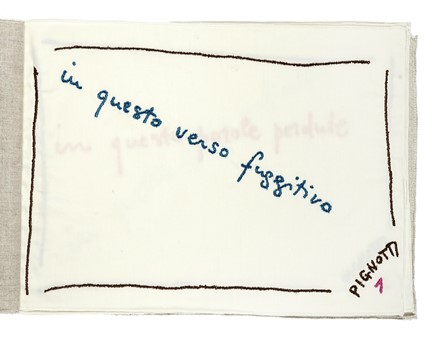 in questo verso fuggitivo
in queste parole perdute
PIGNOTTI
1